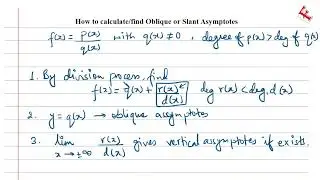 How to calculate/find Oblique or Slant Asymptotes
f(x) = p(x)/q(x) with q(x) ≠ 0, degree of p(x) > deg of q(x)
1. By division process, find
f(x) = q(x) + r(x)/d(x) deg r(x) < deg d(x)
2. y = q(x) → oblique assymptotes
3. lim x→±∞ r(x)/d(x) gives vertical assymptotes if exists.